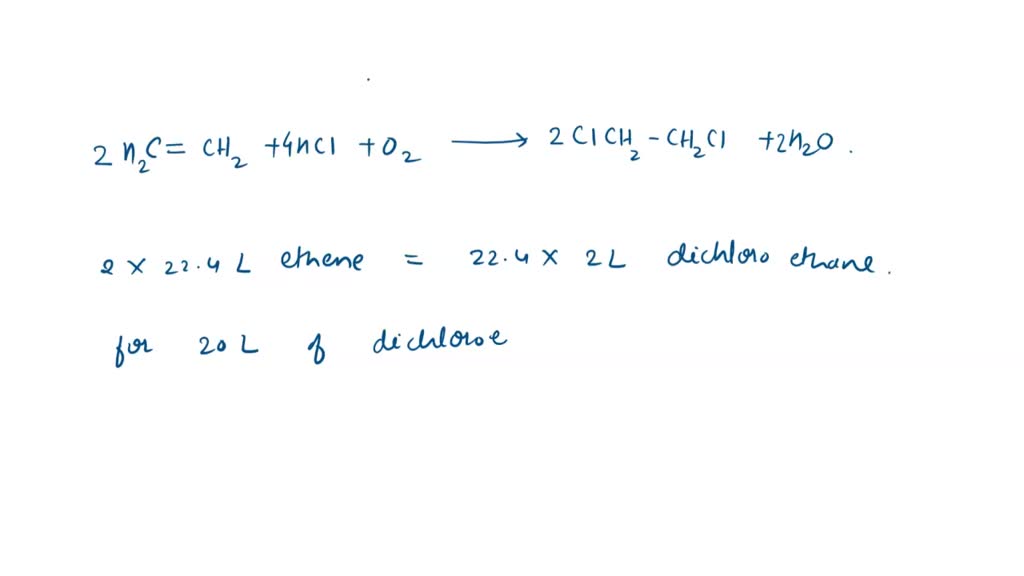 2 H₂C = CH₂ + 4HCl + O₂ ⟶ 2 ClCH₂ - CH₂Cl + 2H₂O .
2 × 22.4 L ethene = 22.4 × 2L dichloro ethane .
for 20 L of dichloroe